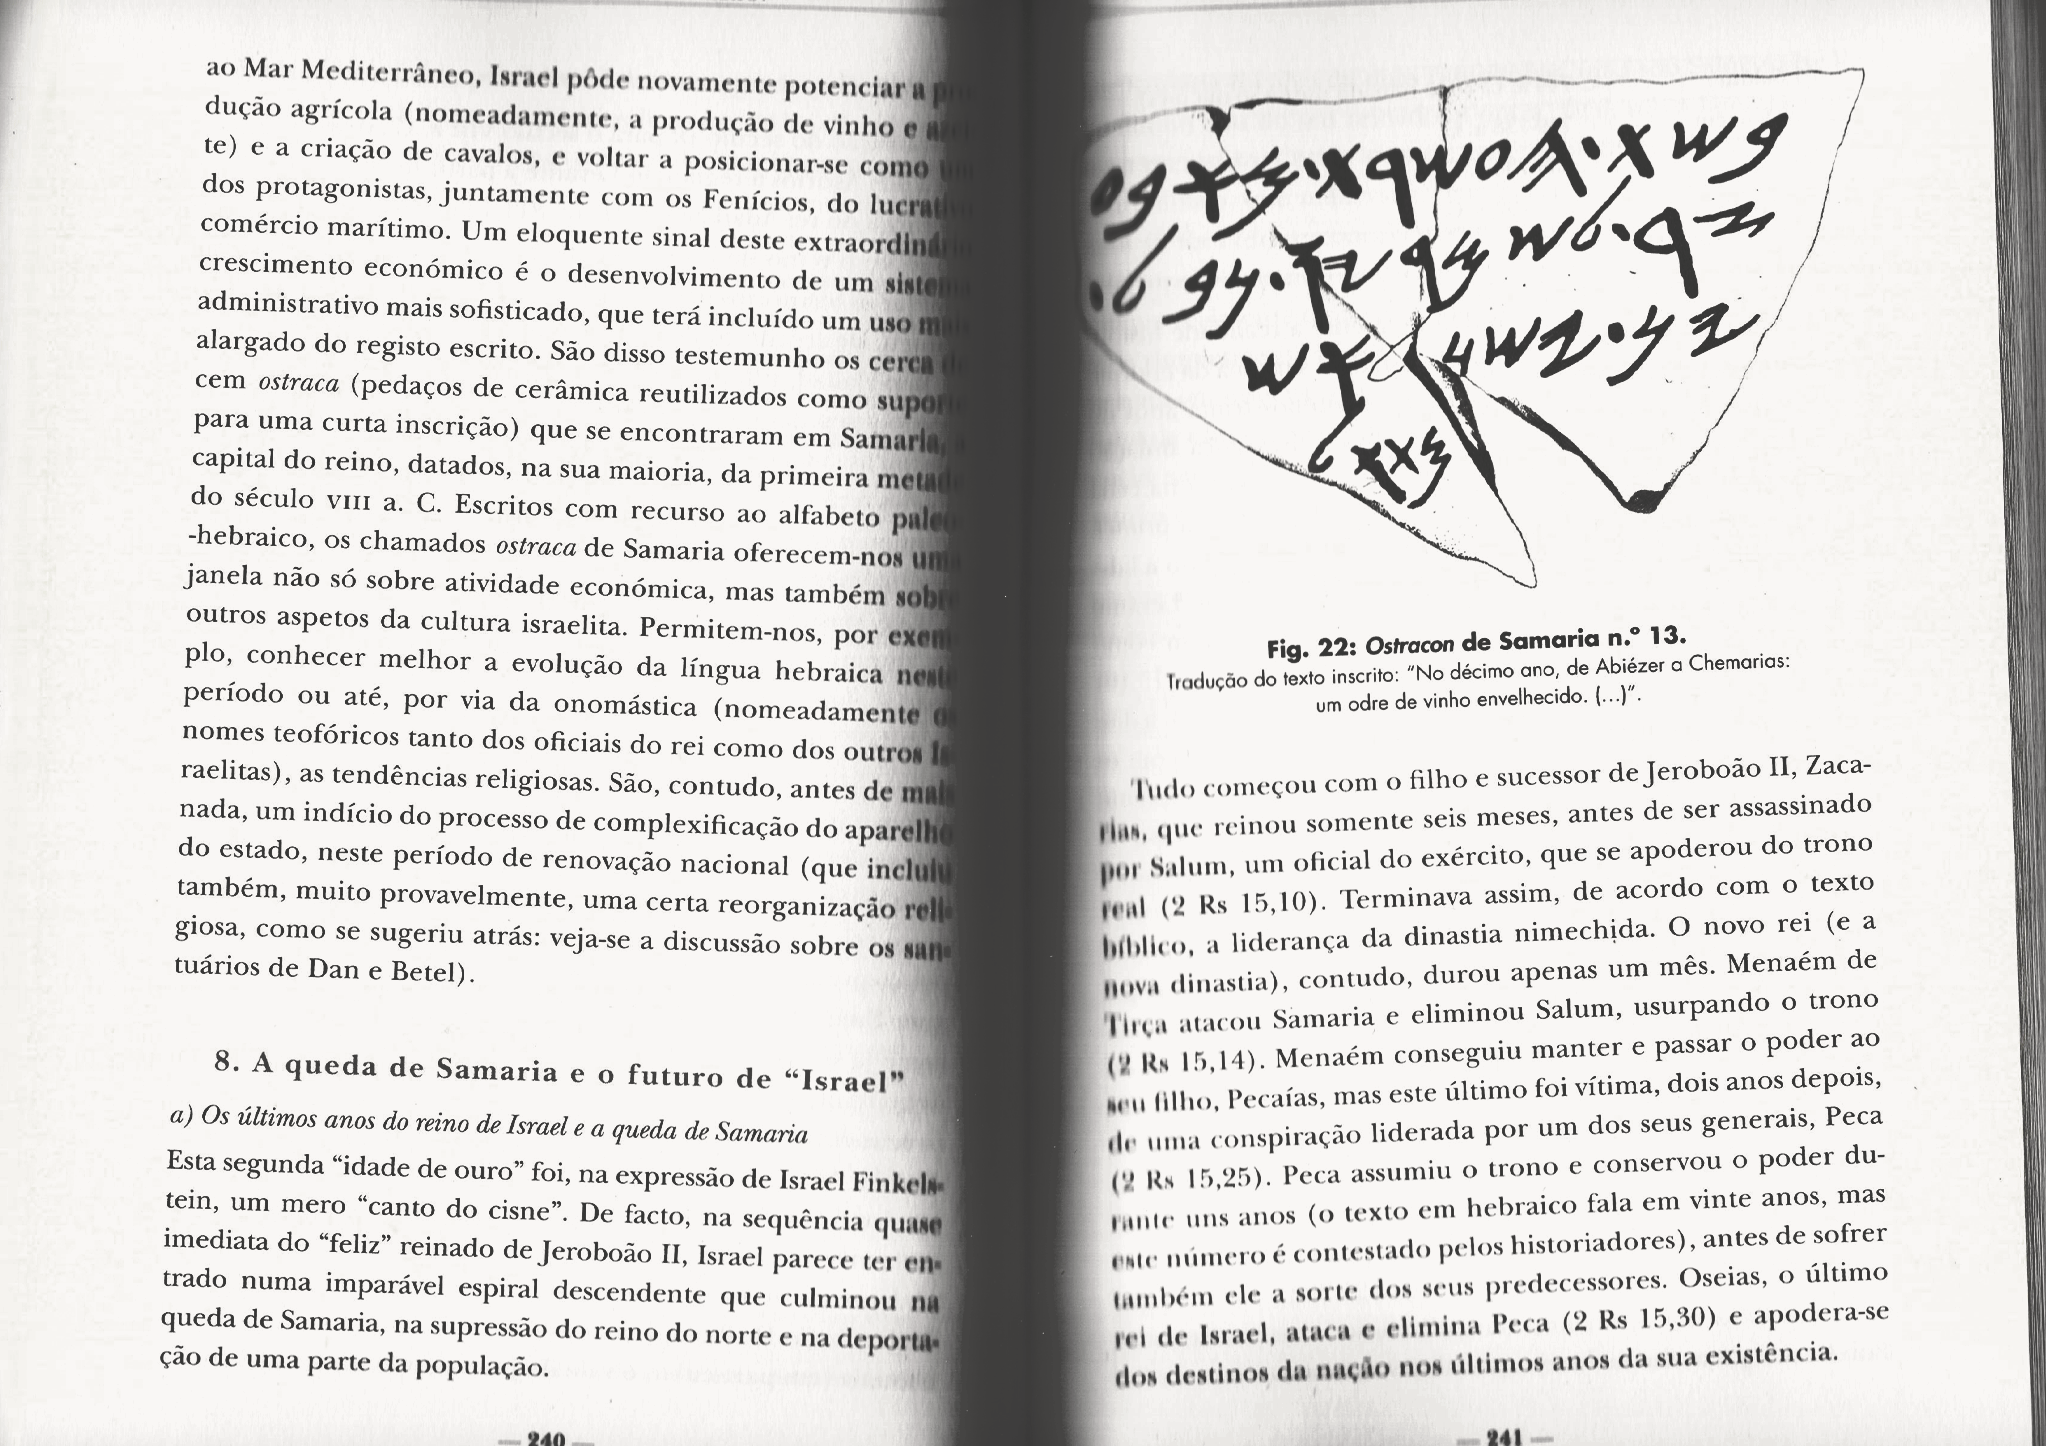 ao Mar Mediterrâneo, Israel pôde novamente potenciar a
dução agrícola (nomeadamente, a produção de vinho e
te) e a criação de cavalos, e voltar a posicionar-se como
dos protagonistas, juntamente com os Fenícios, do
comércio marítimo. Um eloquente sinal deste
crescimento económico é o desenvolvimento de um
administrativo mais sofisticado, que terá incluído um uso
alargado do registo escrito. São disso testemunho os cerca
cem ostraca (pedaços de cerâmica reutilizados como
para uma curta inscrição) que se encontraram em Samaria,
capital do reino, datados, na sua maioria, da primeira
do século VIII a. C. Escritos com recurso ao alfabeto
-hebraico, os chamados ostraca de Samaria oferecem-nos
janela não só sobre atividade económica, mas também
outros aspetos da cultura israelita. Permitem-nos, por
plo, conhecer melhor a evolução da língua hebraica
período ou até, por via da onomástica (nomeadamente
nomes teofóricos tanto dos oficiais do rei como dos outros
raelitas), as tendências religiosas. São, contudo, antes de mais
nada, um indício do processo de complexificação do aparelho
do estado, neste período de renovação nacional (que incluiu
também, muito provavelmente, uma certa reorganização reli-
giosa, como se sugeriu atrás: veja-se a discussão sobre os san-
tuários de Dan e Betel).
8. A queda de Samaria e o futuro de “Israel”
a) Os últimos anos do reino de Israel e a queda de Samaria
Esta segunda “idade de ouro” foi, na expressão de Israel Finkels-
tein, um mero “canto do cisne”. De facto, na sequência quase
imediata do “feliz” reinado de Jeroboão II, Israel parece ter en-
trado numa imparável espiral descendente que culminou na
queda de Samaria, na supressão do reino do norte e na deporta-
ção de uma parte da população.
— 240 —
Fig. 22: Ostracon de Samaria n.º 13.
Tradução do texto inscrito: “No décimo ano, de Abiézer a Chemarias:
um odre de vinho envelhecido. (...)”.
Tudo começou com o filho e sucessor de Jeroboão II, Zaca-
rias, que reinou somente seis meses, antes de ser assassinado
por Salum, um oficial do exército, que se apoderou do trono
real (2 Rs 15,10). Terminava assim, de acordo com o texto
bíblico, a liderança da dinastia nimechida. O novo rei (e a
nova dinastia), contudo, durou apenas um mês. Menaém de
Tirça atacou Samaria e eliminou Salum, usurpando o trono
(2 Rs 15,14). Menaém conseguiu manter e passar o poder ao
seu filho, Pecaías, mas este último foi vítima, dois anos depois,
de uma conspiração liderada por um dos seus generais, Peca
(2 Rs 15,25). Peca assumiu o trono e conservou o poder du-
rante uns anos (o texto em hebraico fala em vinte anos, mas
este número é contestado pelos historiadores), antes de sofrer
também ele a sorte dos seus predecessores. Oseias, o último
rei de Israel, ataca e elimina Peca (2 Rs 15,30) e apodera-se
dos destinos da nação nos últimos anos da sua existência.
— 241 —